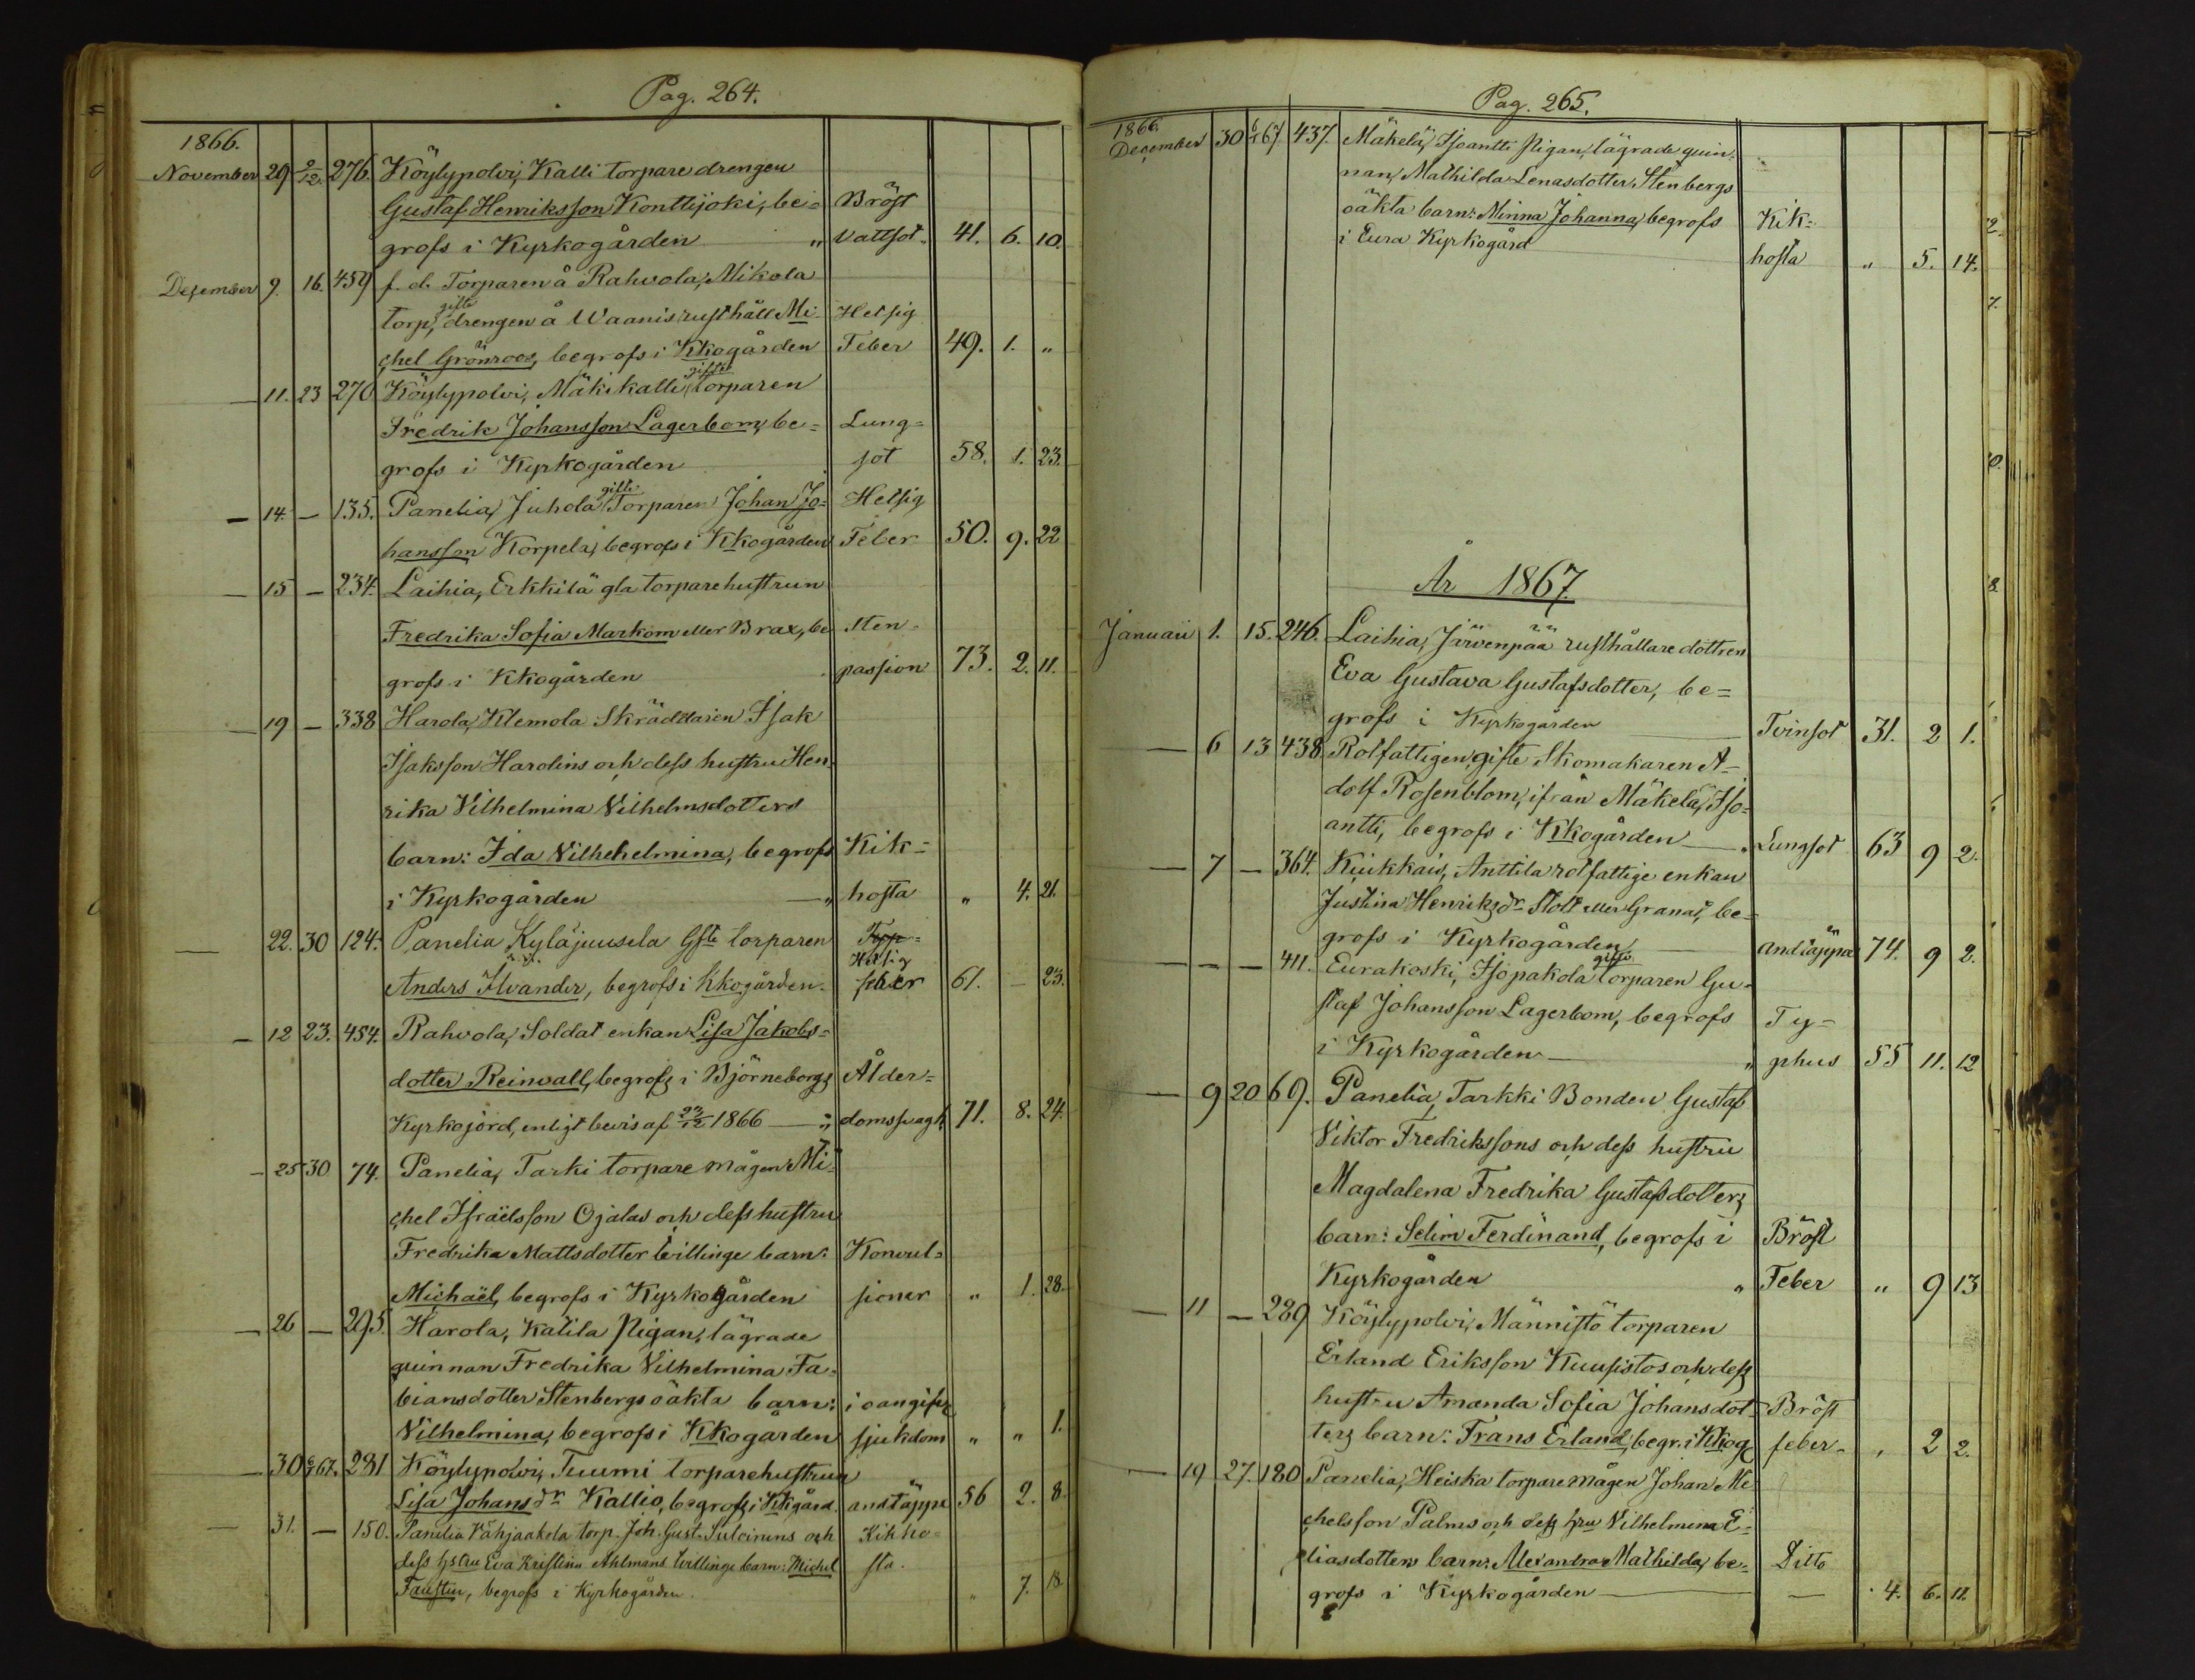 Pag. 264.
1866.
November 29 2/12. 276. Köylypolvi, Kalli torpare drengen
Gustaf Henriksson Konttijoki, be= Bröst
grofs i Kyrkogården " Vattsot. 41. 6. 10.
December 9. 16. 459 f. d. Torparen å Rahvola, Mikola
torp, gifte drengen å Waanis rusthåll Mi- Hetsig
chel Grönroos, begrofs i Kkogården Feber 49. 1. "
— 11. 23 270 Köylypolvi, Mäkikalli gifte torparen
Fredrik Johansson Lagerbom, be= Lung=
grofs i Kyrkogården sot 58. 1. 23.
— 14. — 135. Panelia, Juhola gifte Torparen Johan Jo= Hetsig
hansson Korpela, begrofs i Kkogården Feber 50. 9. 22
— 15 — 234. Laihia, Erkkilä gla torparehustrun
Fredrika Sofia Markom eller Brax, be Sten-
grofs i Kkogården passion 73. 2. 11.
— 19 — 338 Harola, Klemola Skräddaren Isak
Isaksson Harolins och dess hustru Hen-
rika Vilhelmina Vilhelmsdotters
barn: Ida Vilhehelmina, begrofs Kik=
i Kyrkogården — " hosta " 4. 21.
— 22. 30 124. Panelia Kyläjuusela Gfte torparen Typ=
Hetsig
Anders Ilvander, begrofs i Kkogården. feber 61. — 23.
— 12 23. 454. Rahvola, Soldat enkan Lisa Jakobs=
dotter Reinvall, begrofs i Björneborgs Ålder=
Kyrkojord, enligt bevis af 23/12 1866 — " domssvagh 71. 8. 24.
— 25 30 74. Panelia, Tarki torpare mågen Mi-
chel Israëlsson Ojalas och dess hustru
Fredrika Mattsdotter tvillinge barn: Konvul=
Michaël, begrofs i Kyrkogården sioner " 1. 28.
— 26 — 295. Harola, Katila Pigan, lägrade
quinnan Fredrika Vilhelmina Fa-
biansdotter Stenbergs oäkta barn: i oangifv
Vilhelmina, begrofs i Kkogården sjukdom " " 1.
— 30 6/1 67. 281 Köylypolvi, Tuumi torparehustrun
Lisa Johansdr Kallio, begrofs i Kkgård. andtäppa 56 2. 8.
— 31. — 150. Panelia Vähjaakola torp. Joh. Gust. Suloinens och Kikho=
dess hstru Eva Kristina Ahlmans tvillinge barn: Michel sta.
Faustin, begrofs i Kyrkogården. " 7. 18
Pag. 265.
1866.
December 30 6/1 67. 437. Mäkelä, Isoantti Pigan, lägrade quin-
nan, Mathilda Lenasdotter Stenbergs
oäkta barn: Minna Johanna, begrofs Kik=
i Eura Kyrkogård hosta " 5. 14.
År 1867.
Januari 1. 15. 246. Laihia, Järvenpää rusthållare dottren
Eva Gustava Gustafsdotter, be=
grofs i Kyrkogården — Tvinsot 31. 2 1.
— 6 13 438. Rotfattigen, gifte Skomakaren A-
dolf Rosenblom, ifrån Mäkelä, Iso-
antti, begrofs i Kkogården — " Lungsot 63 9 2.
— 7 — 364. Kiukkais, Anttila rotfattige enkan
Justina Henriksdr Stolt eller Granat, be-
grofs i Kyrkogården — andtäppa 74. 9 2.
— — — 411. Eurakoski, Isopakola gifte torparen Gu-
staf Johansson Lagerbom, begrofs Ty=
i Kyrkogården — " phus 55 11. 12
— 9 20 69. Panelia, Tarkki Bonden Gustaf
Viktor Fredrikssons och dess hustru
Magdalena Fredrika Gustafsdoters
barn: Selim Ferdinand, begrofs i Bröst
Kyrkogården " Feber " 9 13
— 11 — 289 Köylypolvi, Männistö torparen
Erland Eriksson Kuusistos och dess
hustru Amanda Sofia Johansdot- Bröst
ters barn: Frans Erland, begr. i Kkog feber - " 2 2.
— 19 27. 180 Panelia, Heiska torpare mågen Johan Mi-
chelsson Palms och dess hru Vilhelmina E-
liasdotters barn: Alexandra Mathilda, be- Ditto
grofs i Kyrkogården — — 4. 6. 11.